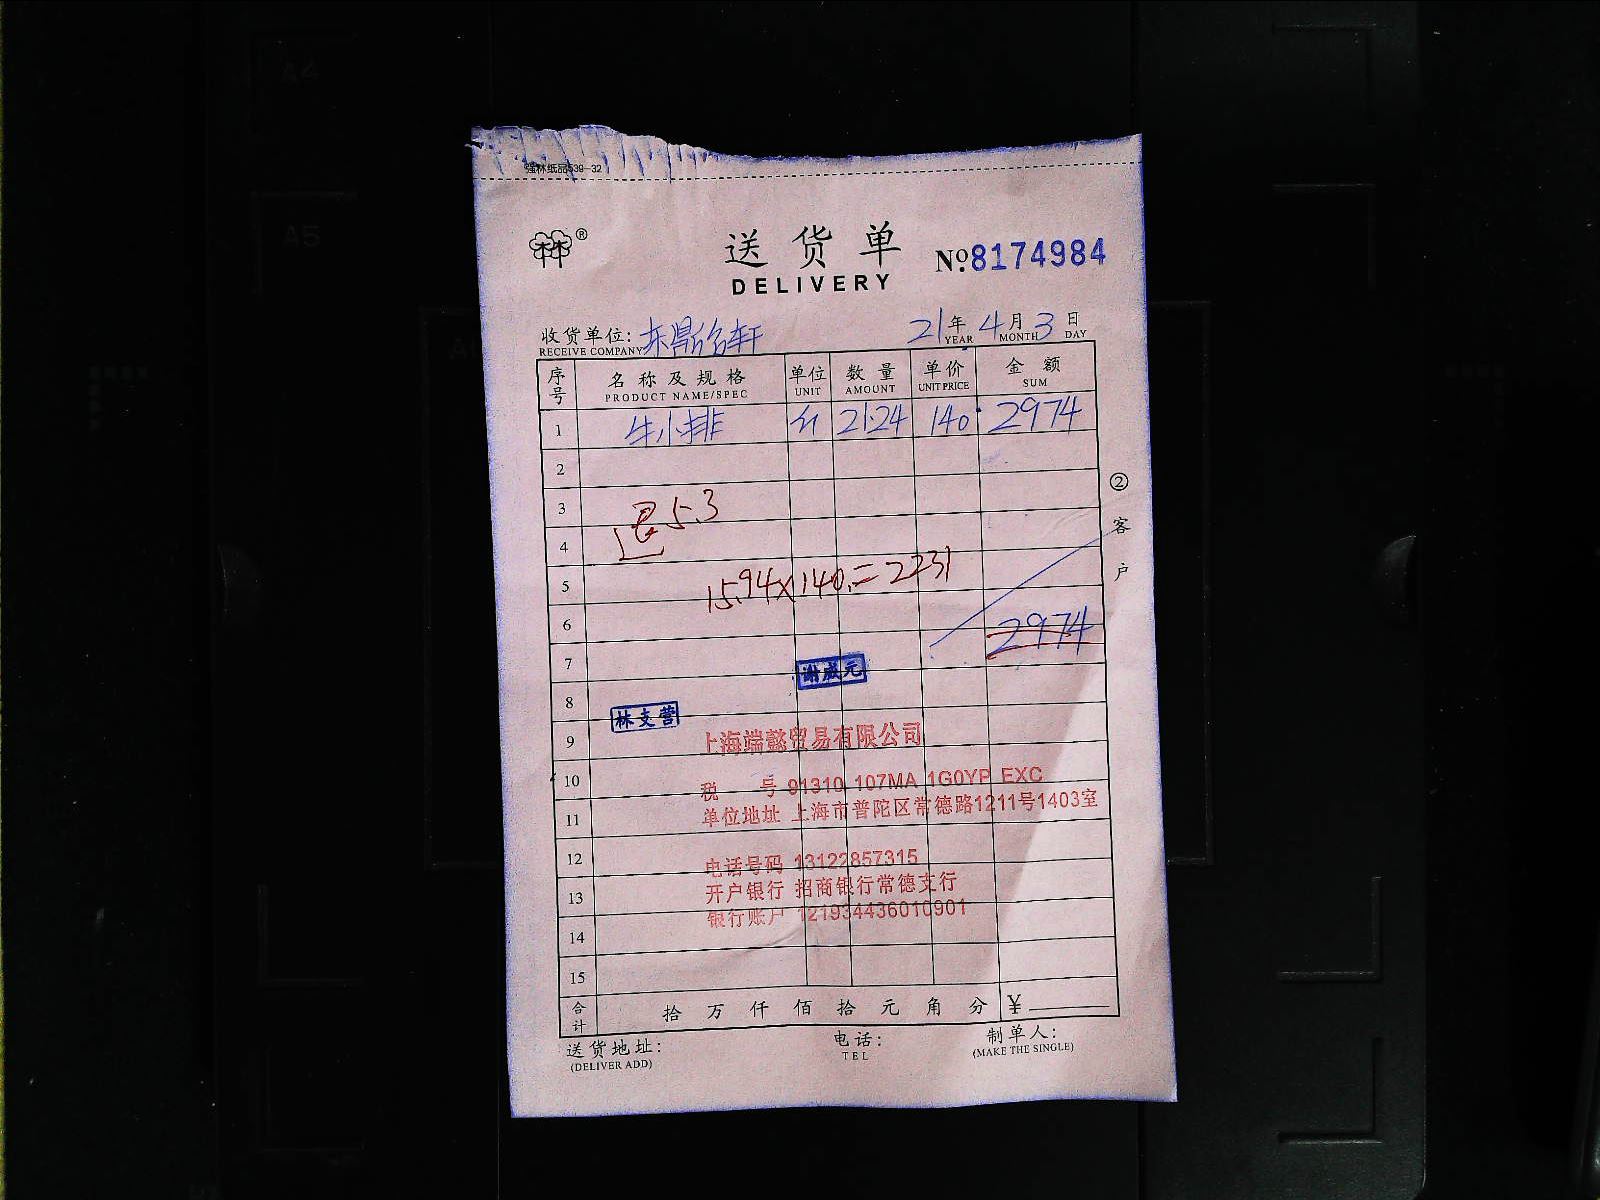 强林纸品539-32
送货单 №8174984
DELIVERY
收货单位: 东鼎名轩 21年 4月 3日
RECEIVE COMPANY YEAR MONTH DAY
序号 名称及规格 单位 数量 单价 金额
PRODUCT NAME/SPEC UNIT AMOUNT UNIT PRICE SUM
1 牛小排 斤 21.24 140 2974
2
3
退5.3
4
5
15.94×140=2231
6
2974
7
谢成元
8
林支营
9
上海端懿贸易有限公司
10
税 号 91310 107MA 1G0YP EXC
11
单位地址 上海市普陀区常德路1211号1403室
12
电话号码 13122857315
13
开户银行 招商银行常德支行
银行账户 121934436010901
14
15
合计 拾 万 仟 佰 拾 元 角 分 ¥
②客户
送货地址: 电话: 制单人:
(DELIVER ADD) TEL (MAKE THE SINGLE)
A4
A5